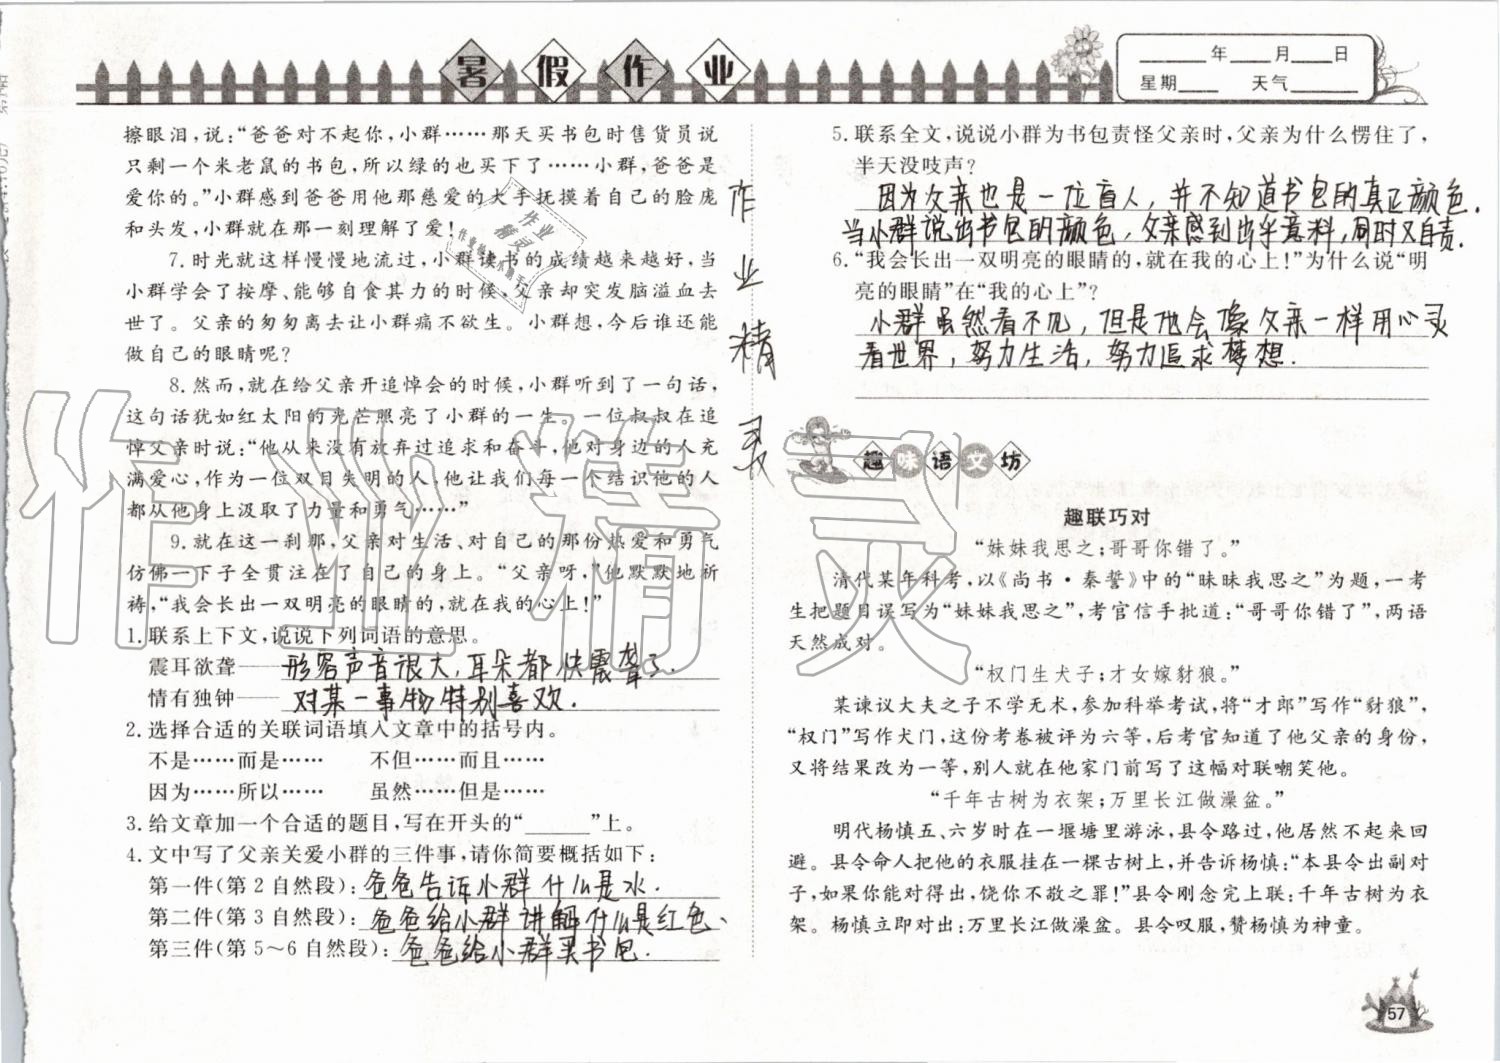 暑假作业
____年____月____日
星期____ 天气______
擦眼泪，说：“爸爸对不起你，小群……那天买书包时售货员说
只剩一个米老鼠的书包，所以绿的也买下了……小群，爸爸是
爱你的。”小群感到爸爸用他那慈爱的大手抚摸着自己的脸庞
和头发，小群就在那一刻理解了爱！
7. 时光就这样慢慢地流过，小群读书的成绩越来越好，当
小群学会了按摩、能够自食其力的时候，父亲却突发脑溢血去
世了。父亲的匆匆离去让小群痛不欲生。小群想，今后谁还能
做自己的眼睛呢？
8. 然而，就在给父亲开追悼会的时候，小群听到了一句话，
这句话犹如红太阳的光芒照亮了小群的一生。一位叔叔在追
悼父亲时说：“他从来没有放弃过追求和奋斗，他对身边的人充
满爱心，作为一位双目失明的人，他让我们每一个结识他的人
都从他身上汲取了力量和勇气……”
9. 就在这一刹那，父亲对生活、对自己的那份热爱和勇气
仿佛一下子全贯注在了自己的身上。“父亲呀，”他默默地祈
祷，“我会长出一双明亮的眼睛的，就在我的心上！”
1. 联系上下文，说说下列词语的意思。
震耳欲聋——形容声音很大，耳朵都快震聋了.
情有独钟——对某一事物特别喜欢.
2. 选择合适的关联词语填入文章中的括号内。
不是……而是…… 不但……而且……
因为……所以…… 虽然……但是……
3. 给文章加一个合适的题目，写在开头的“______”上。
4. 文中写了父亲关爱小群的三件事，请你简要概括如下：
第一件(第 2 自然段)：爸爸告诉小群什么是水.
第二件(第 3 自然段)：爸爸给小群讲解什么是红色、
第三件(第 5～6 自然段)：爸爸给小群买书包.
作业精灵
作业精灵
5. 联系全文，说说小群为书包责怪父亲时，父亲为什么愣住了，
半天没吱声？
因为父亲也是一位盲人，并不知道书包的真正颜色.
当小群说出书包的颜色，父亲感到出乎意料，同时又自责.
6. “我会长出一双明亮的眼睛的，就在我的心上！”为什么说“明
亮的眼睛”在“我的心上”？
小群虽然看不见，但是他会像父亲一样用心灵
看世界，努力生活，努力追求梦想.
趣味语文坊
趣联巧对
“妹妹我思之；哥哥你错了。”
清代某年科考，以《尚书·秦誓》中的“昧昧我思之”为题，一考
生把题目误写为“妹妹我思之”，考官信手批道：“哥哥你错了”，两语
天然成对。
“权门生犬子；才女嫁豺狼。”
某谏议大夫之子不学无术，参加科举考试，将“才郎”写作“豺狼”，
“权门”写作犬门，这份考卷被评为六等，后考官知道了他父亲的身份，
又将结果改为一等，别人就在他家门前写了这幅对联嘲笑他。
“千年古树为衣架；万里长江做澡盆。”
明代杨慎五、六岁时在一堰塘里游泳，县令路过，他居然不起来回
避。县令命人把他的衣服挂在一棵古树上，并告诉杨慎：“本县令出副对
子，如果你能对得出，饶你不敬之罪！”县令刚念完上联：千年古树为衣
架。杨慎立即对出：万里长江做澡盆。县令叹服，赞杨慎为神童。
57